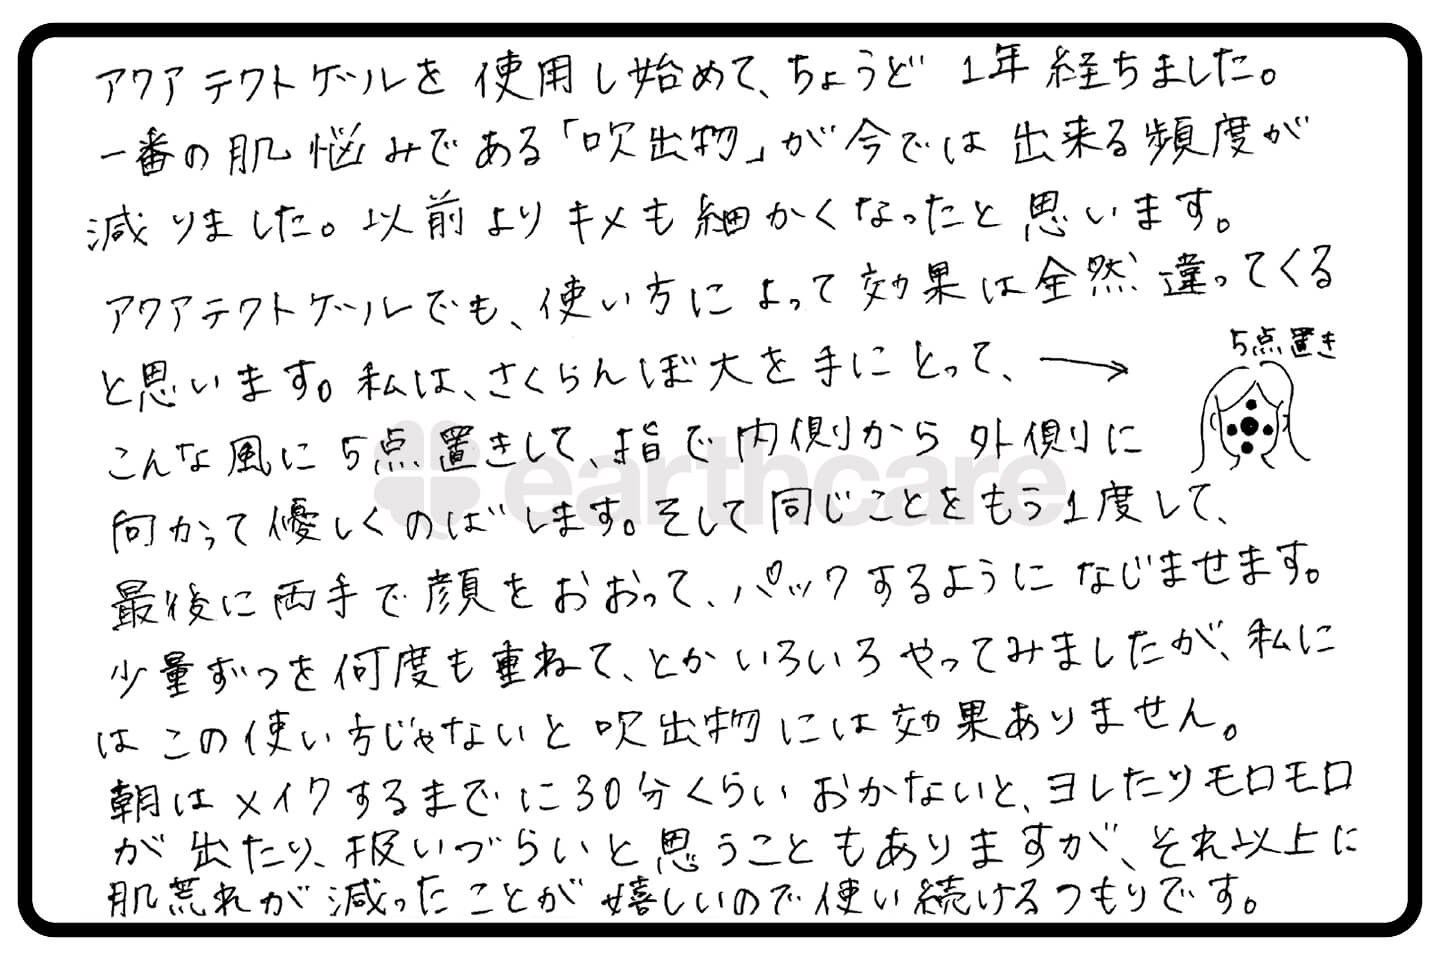 アクアテクトゲルを使用し始めて、ちょうど1年経ちました。
一番の肌悩みである「吹出物」が今では出来る頻度が
減りました。以前よりキメも細かくなったと思います。
アクアテクトゲールでも、使い方によって効果は全然違ってくる
と思います。私は、さくらんぼ大を手にとって、→
5点置き
こんな風に5点置きして、指で内側から外側に
向かって優しくのばします。そして同じことをもう1度して、
最後に両手で顔をおおって、パックするようになじませます。
少量ずつを何度も重ねて、とかいろいろやってみましたが、私に
はこの使い方じゃないと吹出物には効果ありません。
朝はメイクするまでに30分くらいおかないと、ヨレたりモロモロ
が出たり、扱いづらいと思うこともありますが、それ以上に
肌荒れが減ったことが嬉しいので使い続けるつもりです。
earthcare